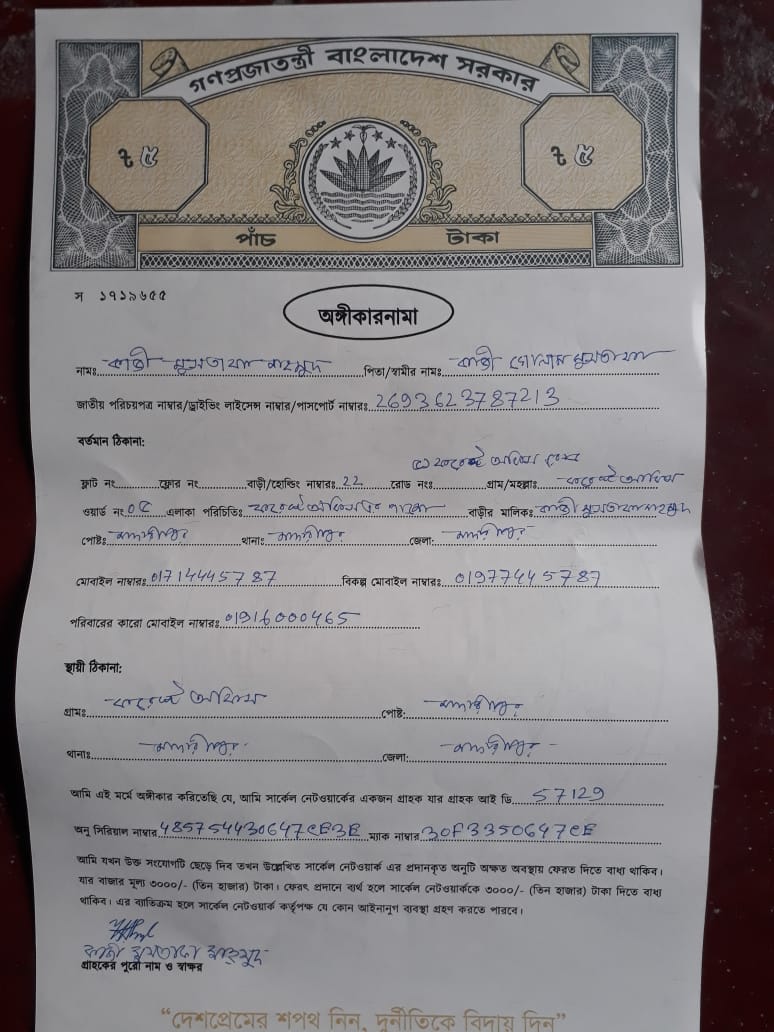 গণপ্রজাতন্ত্রী বাংলাদেশ সরকার
৳ ৫ ৳ ৫
পাঁচ টাকা
স ১৭১৯৬৫৫
অঙ্গীকারনামা
নামঃ কাজী মাহমুদ পিতা/স্বামীর নামঃ কাজী গোলাম মুসতাফা
জাতীয় পরিচয়পত্র নাম্বার/ড্রাইভিং লাইসেন্স নাম্বার/পাসপোর্ট নাম্বারঃ 2693623787213
বর্তমান ঠিকানা:
ফ্লাট নং ফ্লোর নং বাড়ী/হোল্ডিং নাম্বারঃ 22 রোড নংঃ গ্রাম/মহল্লাঃ
ওয়ার্ড নং ০৫ এলাকা পরিচিতিঃ বাড়ীর মালিকঃ কাজী
পোষ্টঃ মাদারীপুর থানাঃ মাদারীপুর জেলা: মাদারীপুর
মোবাইল নাম্বারঃ 01714445787 বিকল্প মোবাইল নাম্বারঃ 01977445787
পরিবারের কারো মোবাইল নাম্বারঃ 01916000465
স্থায়ী ঠিকানা:
গ্রামঃ পোষ্ট: মাদারীপুর
থানাঃ মাদারীপুর জেলা: মাদারীপুর
আমি এই মর্মে অঙ্গীকার করিতেছি যে, আমি সার্কেল নেটওয়ার্কের একজন গ্রাহক যার গ্রাহক আই ডি 57129
অনু সিরিয়াল নাম্বার 485754430647CE3E ম্যাক নাম্বার 30F3350647CE
আমি যখন উক্ত সংযোগটি ছেড়ে দিব তখন উল্লেখিত সার্কেল নেটওয়ার্ক এর প্রদানকৃত অনুটি অক্ষত অবস্থায় ফেরত দিতে বাধ্য থাকিব।
যার বাজার মূল্য ৩০০০/- (তিন হাজার) টাকা। ফেরৎ প্রদানে ব্যর্থ হলে সার্কেল নেটওয়ার্ককে ৩০০০/- (তিন হাজার) টাকা দিতে বাধ্য
থাকিব। এর ব্যাতিক্রম হলে সার্কেল নেটওয়ার্ক কর্তৃপক্ষ যে কোন আইনানুগ ব্যবস্থা গ্রহণ করতে পারবে।
কাজী মাহমুদ
গ্রাহকের পুরো নাম ও স্বাক্ষর
“দেশপ্রেমের শপথ নিন, দুর্নীতিকে বিদায় দিন”